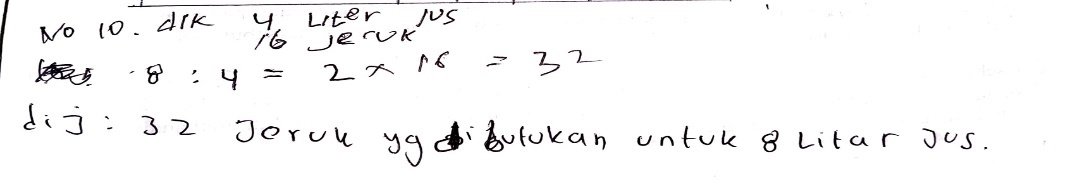 No 10. dik 4 Liter jus
16 Jeruk
8 : 4 = 2 x 16 = 32
dij : 32 Joruk yg dibutukan untuk 8 Litar Jus.